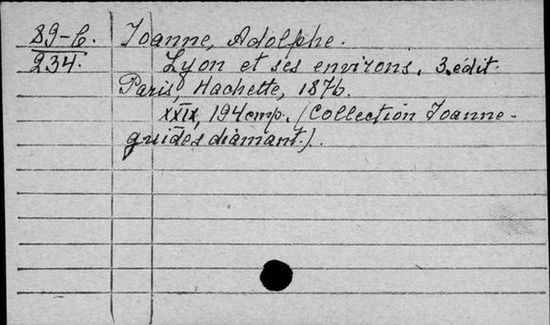 89-C. Joanne, Adolphe.
234. Lyon et ses environs. 3. édit.
Paris, Hachette, 1876.
XXIX, 194 cmp. (Collection Joanne-
guides diamant.).